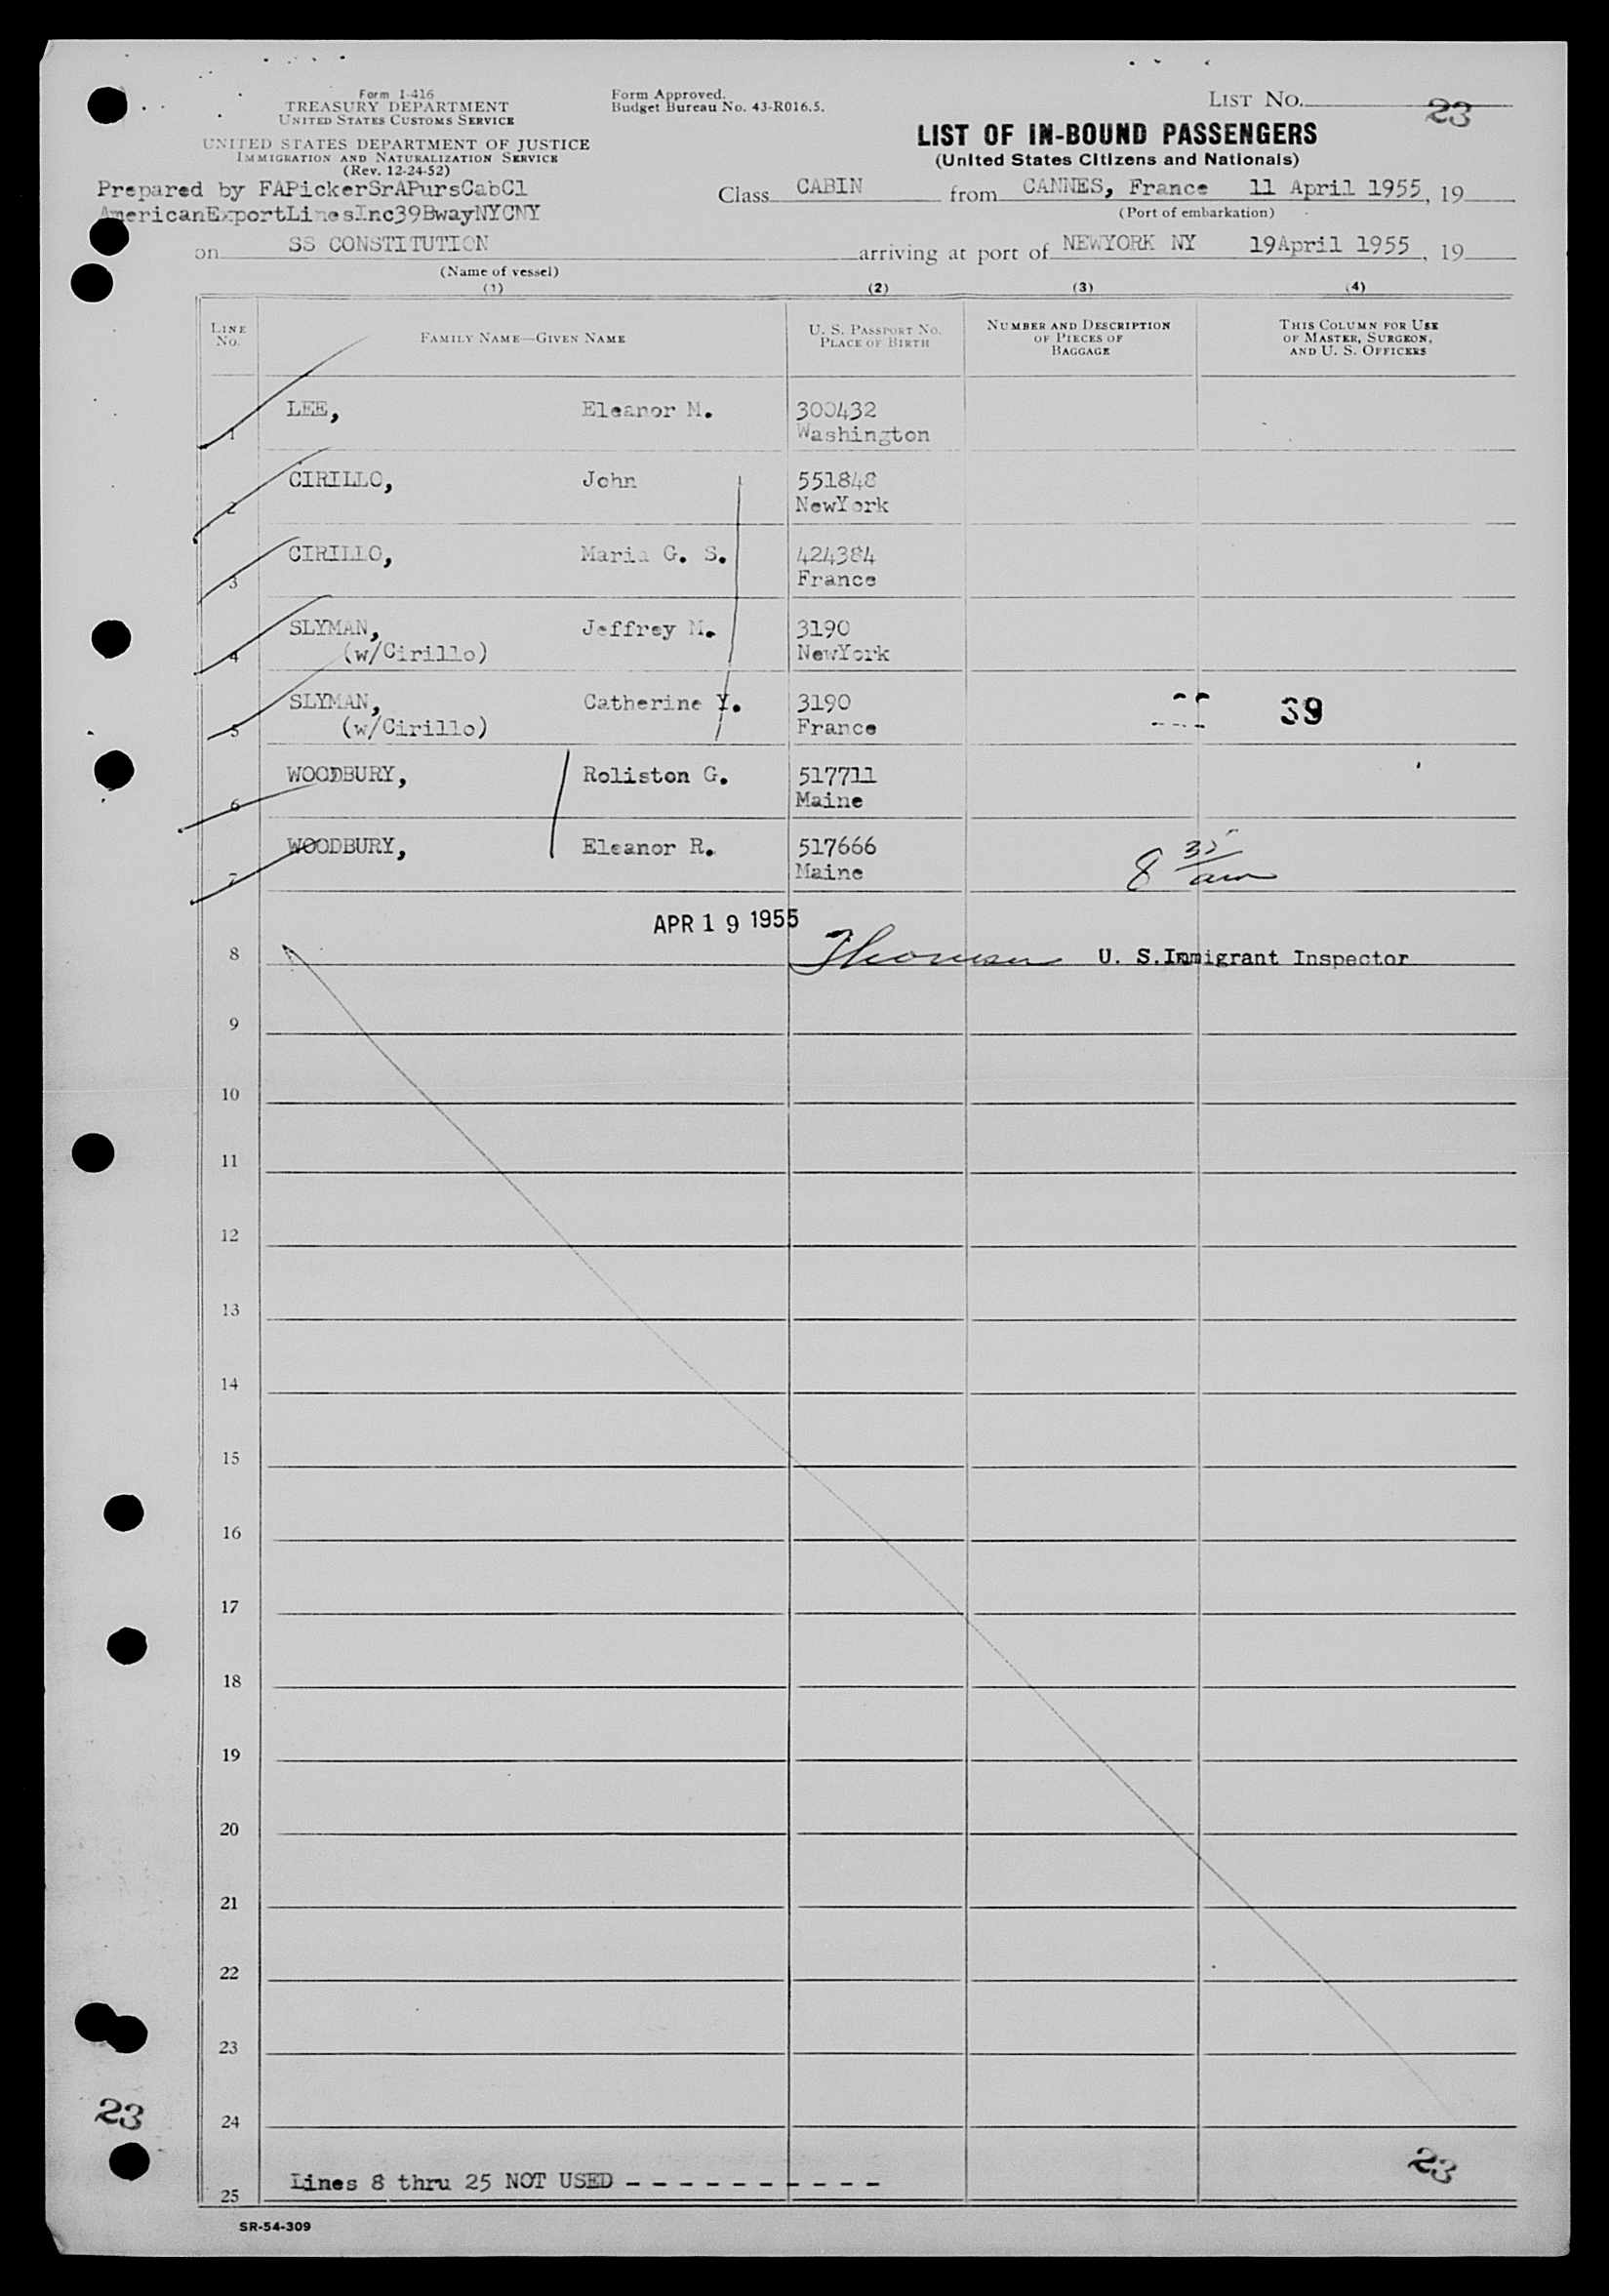 Form I-416
TREASURY DEPARTMENT
UNITED STATES CUSTOMS SERVICE
UNITED STATES DEPARTMENT OF JUSTICE
IMMIGRATION AND NATURALIZATION SERVICE
(Rev. 12-24-52)
Form Approved.
Budget Bureau No. 43-R016.5.
LIST NO. 23
LIST OF IN-BOUND PASSENGERS
(United States Citizens and Nationals)
Prepared by FAPickerSrAPursCabCl
AmericanExportLinesInc39BwayNYCNY
Class CABIN from CANNES, France 11 April 1955, 19
(Port of embarkation)
on SS CONSTITUTION arriving at port of NEWYORK NY 19April 1955, 19
(Name of vessel)
(1) (2) (3) (4)
LINE NO. FAMILY NAME—GIVEN NAME U. S. PASSPORT NO. PLACE OF BIRTH NUMBER AND DESCRIPTION OF PIECES OF BAGGAGE THIS COLUMN FOR USE OF MASTER, SURGEON, AND U. S. OFFICERS
LEE, Eleanor M. 300432
1 Washington
CIRILLO, John 551848
2 NewYork
CIRILLO, Maria G. S. 424384
3 France
SLYMAN, Jeffrey M. 3190
4 (w/Cirillo) NewYork
SLYMAN, Catherine Y. 3190 39
5 (w/Cirillo) France
WOODBURY, Roliston G. 517711
6 Maine
WOODBURY, Eleanor R. 517666
7 Maine 8 35 am
APR 19 1955
8 U. S.Immigrant Inspector
9
10
11
12
13
14
15
16
17
18
19
20
21
22
23
23
24
23
Lines 8 thru 25 NOT USED - - - - - - - - - -
25
SR-54-309